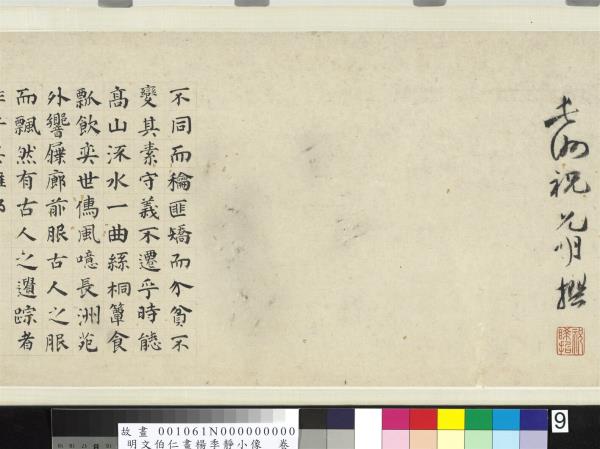 長洲祝允明撰
不同而穐匪矯而介貧不
變其素守義不遷乎時態
高山流水一曲絲桐簞食
瓢飲奕世儁風噫長洲苑
外響屧廊前眼古人之眼
而飄然有古人之遺踪者
9
故畫 001061N000000000
明文伯仁畫楊季靜小像 卷